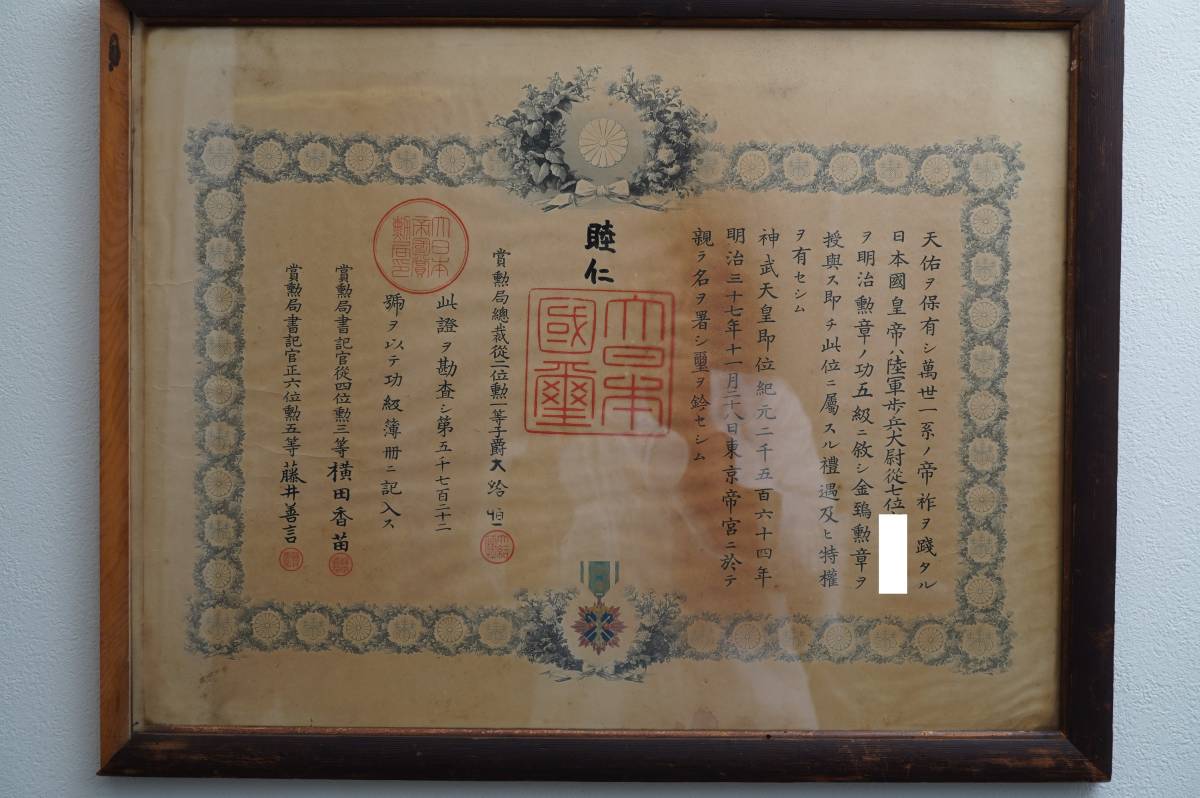 天佑ヲ保有シ萬世一系ノ帝祚ヲ踐タル
日本國皇帝ハ陸軍歩兵大尉從七位
ヲ明治勲章ノ功五級ニ敘シ金鵄勲章ヲ
授與ス即チ此位ニ屬スル禮遇及ヒ特權
ヲ有セシム
神武天皇即位紀元二千五百六十四年
明治三十七年十一月二十八日東京帝宮ニ於テ
親ラ名ヲ署シ璽ヲ鈐セシム
睦仁
大日本國璽
賞勲局總裁從二位勲一等子爵大給恒
此證ヲ勘査シ第五千七百二十二
號ヲ以テ功級簿册ニ記入ス
大日本帝國賞勲局印
賞勲局書記官從四位勲三等橫田香苗
賞勲局書記官正六位勲五等藤井善言